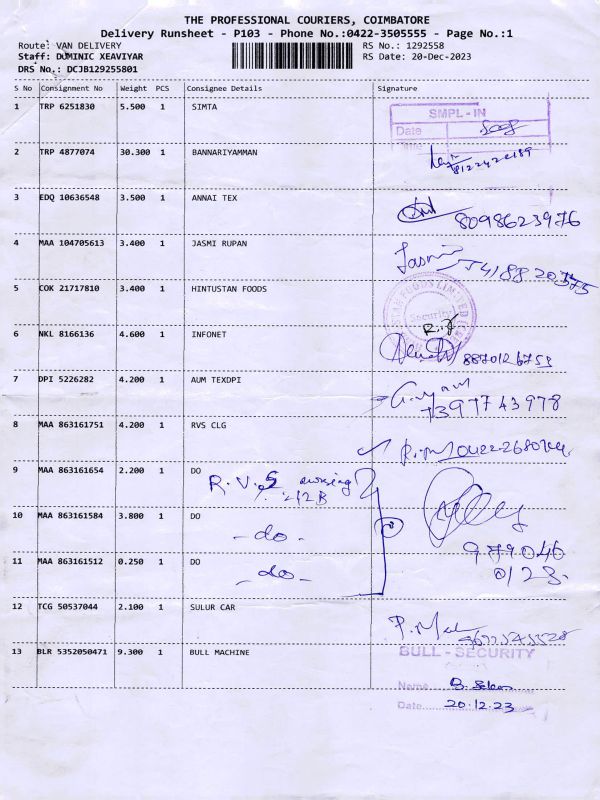 THE PROFESSIONAL COURIERS, COIMBATORE
Delivery Runsheet - P103 - Phone No.:0422-3505555 - Page No.:1
Route: VAN DELIVERY RS No.: 1292558
Staff: DOMINIC XEAVIYAR RS Date: 20-Dec-2023
DRS No.: DCJB129255801
S No Consignment No Weight PCS Consignee Details Signature
1 TRP 6251830 5.500 1 SIMTA
SMPL - IN
Date
2 TRP 4877074 30.300 1 BANNARIYAMMAN
3 EDQ 10636548 3.500 1 ANNAI TEX
8098623976
4 MAA 104705613 3.400 1 JASMI RUPAN
5 COK 21717810 3.400 1 HINTUSTAN FOODS
Security
6 NKL 8166136 4.600 1 INFONET
8870126753
7 DPI 5226282 4.200 1 AUM TEXDPI
8 MAA 863161751 4.200 1 RVS CLG
9 MAA 863161654 2.200 1 DO
R.V.S nursing
10 MAA 863161584 3.800 1 DO
- do -
979046
11 MAA 863161512 0.250 1 DO
- do -
0123.
12 TCG 50537044 2.100 1 SULUR CAR
13 BLR 5352050471 9.300 1 BULL MACHINE
BULL - SECURITY
Name
Date 20.12.23